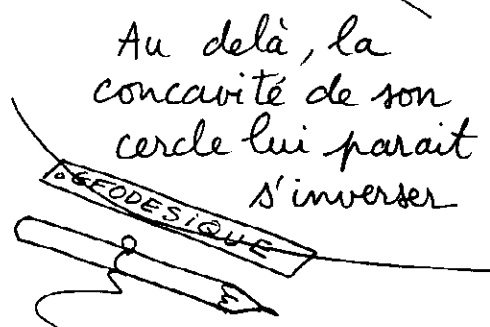 Au delà, la
concavité de son
cercle lui parait
s'inverser
GEODESIQUE